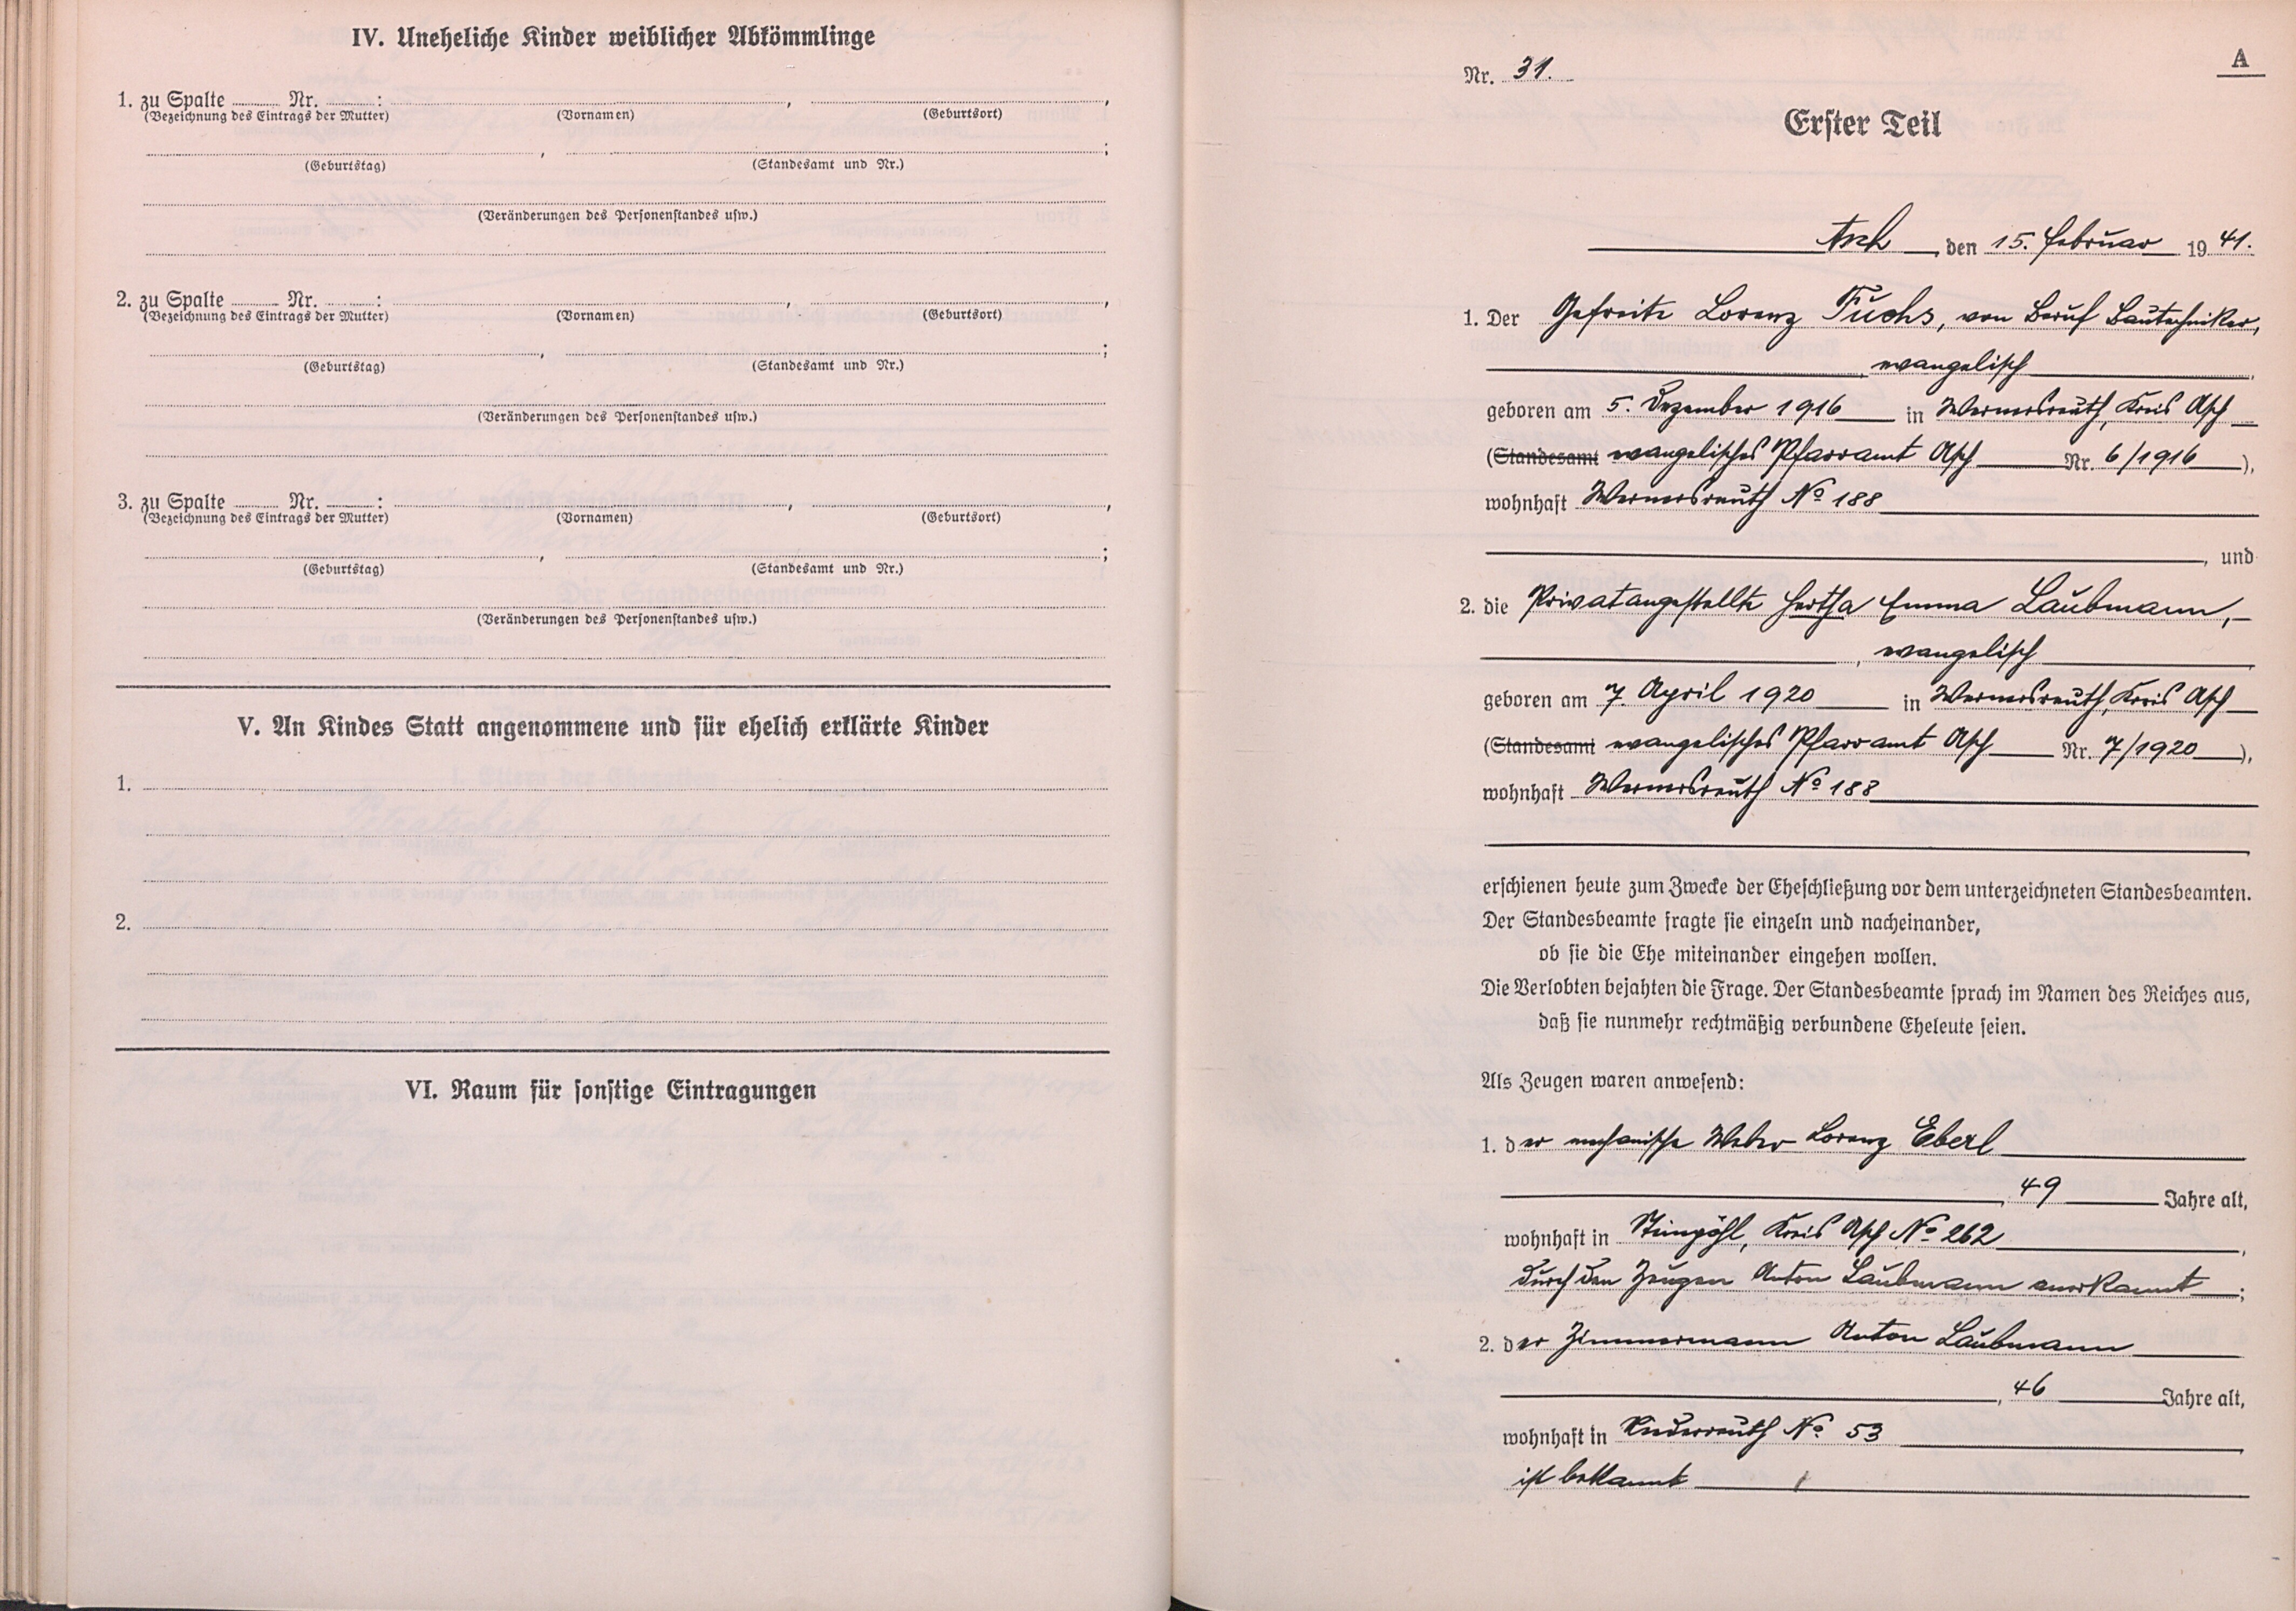 IV. Uneheliche Kinder weiblicher Abkömmlinge
1. zu Spalte ........ Nr. ........ : ........ , ........ ,
(Bezeichnung des Eintrags der Mutter) (Vornamen) (Geburtsort)
........ , ........ ;
(Geburtstag) (Standesamt und Nr.)
(Veränderungen des Personenstandes usw.)
2. zu Spalte ........ Nr. ........ : ........ , ........ ,
(Bezeichnung des Eintrags der Mutter) (Vornamen) (Geburtsort)
........ , ........ ;
(Geburtstag) (Standesamt und Nr.)
(Veränderungen des Personenstandes usw.)
3. zu Spalte ........ Nr. ........ : ........ , ........ ,
(Bezeichnung des Eintrags der Mutter) (Vornamen) (Geburtsort)
........ , ........ ;
(Geburtstag) (Standesamt und Nr.)
(Veränderungen des Personenstandes usw.)
V. An Kindes Statt angenommene und für ehelich erklärte Kinder
1.
2.
VI. Raum für sonstige Eintragungen
A
Nr. 31.
Erster Teil
Asch, den 15. Februar 1941.
1. Der Gefreite Lorenz Fuchs, von Beruf Bautechniker,
, evangelisch
geboren am 5. Dezember 1916 in Wernersreuth, Kreis Asch
(Standesamt evangelisches Pfarramt Asch Nr. 6/1916),
wohnhaft Wernersreuth No 188
, und
2. die Privatangestellte Hertha Emma Laubmann,
, evangelisch
geboren am 7. April 1920 in Wernersreuth, Kreis Asch
(Standesamt evangelisches Pfarramt Asch Nr. 7/1920),
wohnhaft Wernersreuth No 188
erschienen heute zum Zwecke der Eheschließung vor dem unterzeichneten Standesbeamten.
Der Standesbeamte fragte sie einzeln und nacheinander,
ob sie die Ehe miteinander eingehen wollen.
Die Verlobten bejahten die Frage. Der Standesbeamte sprach im Namen des Reiches aus,
daß sie nunmehr rechtmäßig verbundene Eheleute seien.
Als Zeugen waren anwesend:
1. der mechanische Weber Lorenz Eberl
, 49 Jahre alt,
wohnhaft in Steinpöhl, Kreis Asch No 262,
durch den Zeugen Anton Laubmann anerkannt;
2. der Zimmermann Anton Laubmann
, 46 Jahre alt,
wohnhaft in Niederreuth No 53
ist bekannt